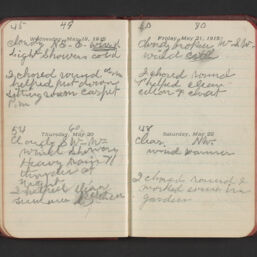 45 49
Wednesday, May 19, 1915
Cloudy N.E. wind
light showers cold
I chored round am
helped put down
sitting room carpet
P.m
54 60
Thursday, May 20
Cloudy S.W. W.
wind showery
Heavy rain &
thunder at
night
I helped clean
50 80
Friday, May 21, 1915
Cloudy broken W. S.W.
wind cold
I chored round
helped clean
cellar & chart
48
Saturday, May 22
Clear NW.
wind warmer
I chored round &
worked some in
garden